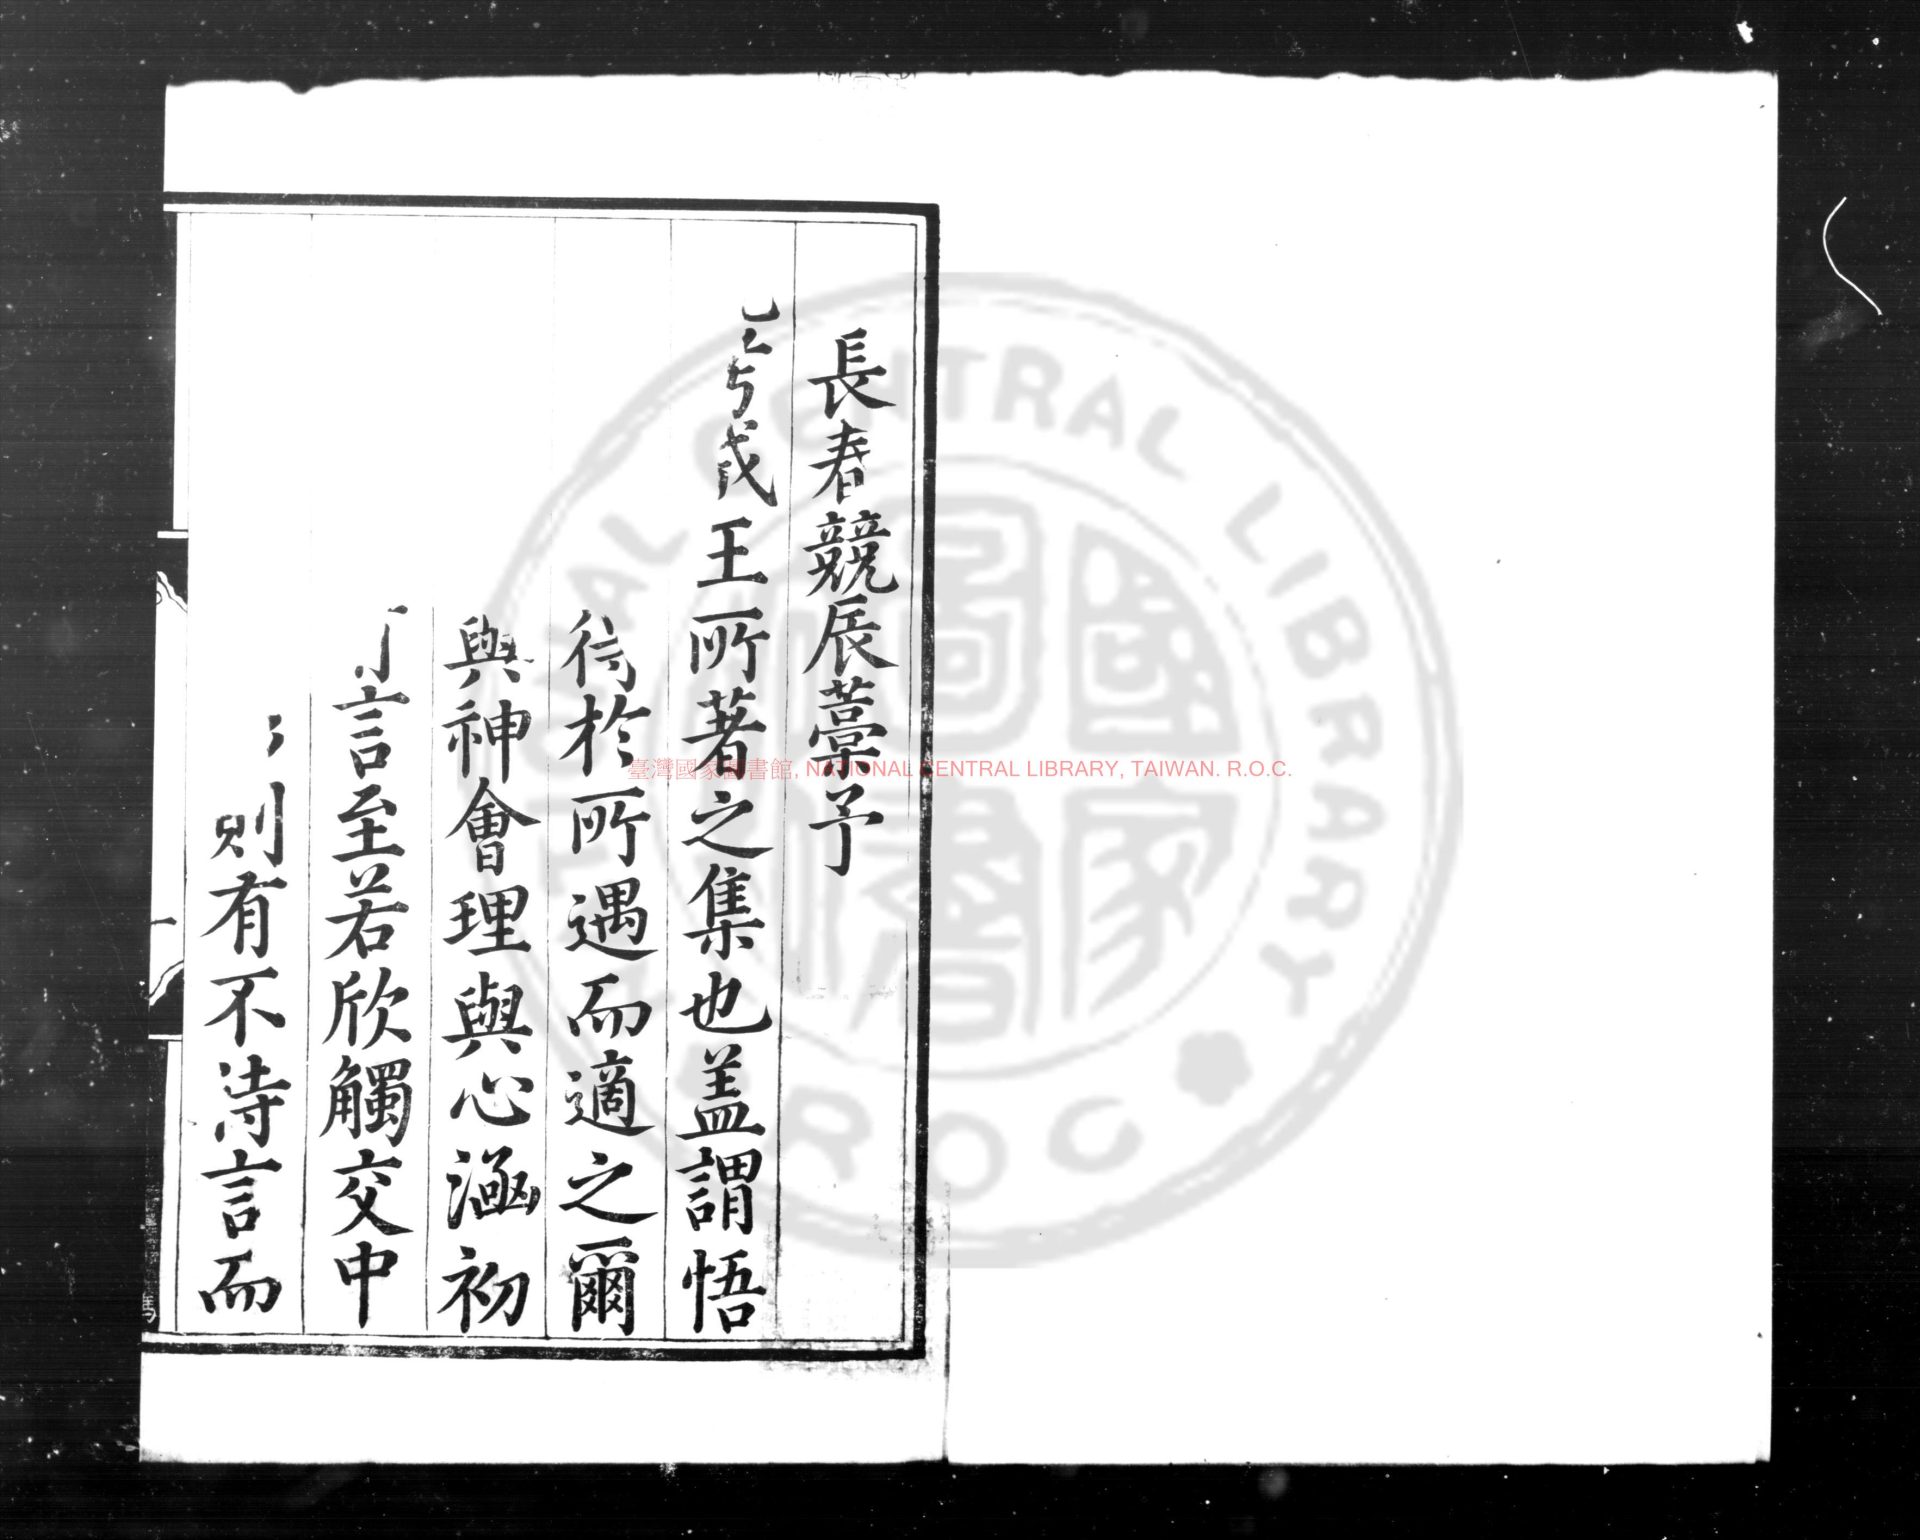 長春競辰藁予
王所著之集也盖謂悟
待於所遇而適之爾
與神會理與心涵初
言至若欣觸交中
則有不待言而
一
臺灣國家圖書館, NATIONAL CENTRAL LIBRARY, TAIWAN. R.O.C.
NATIONAL CENTRAL LIBRARY
R.O.C.
國家圖書